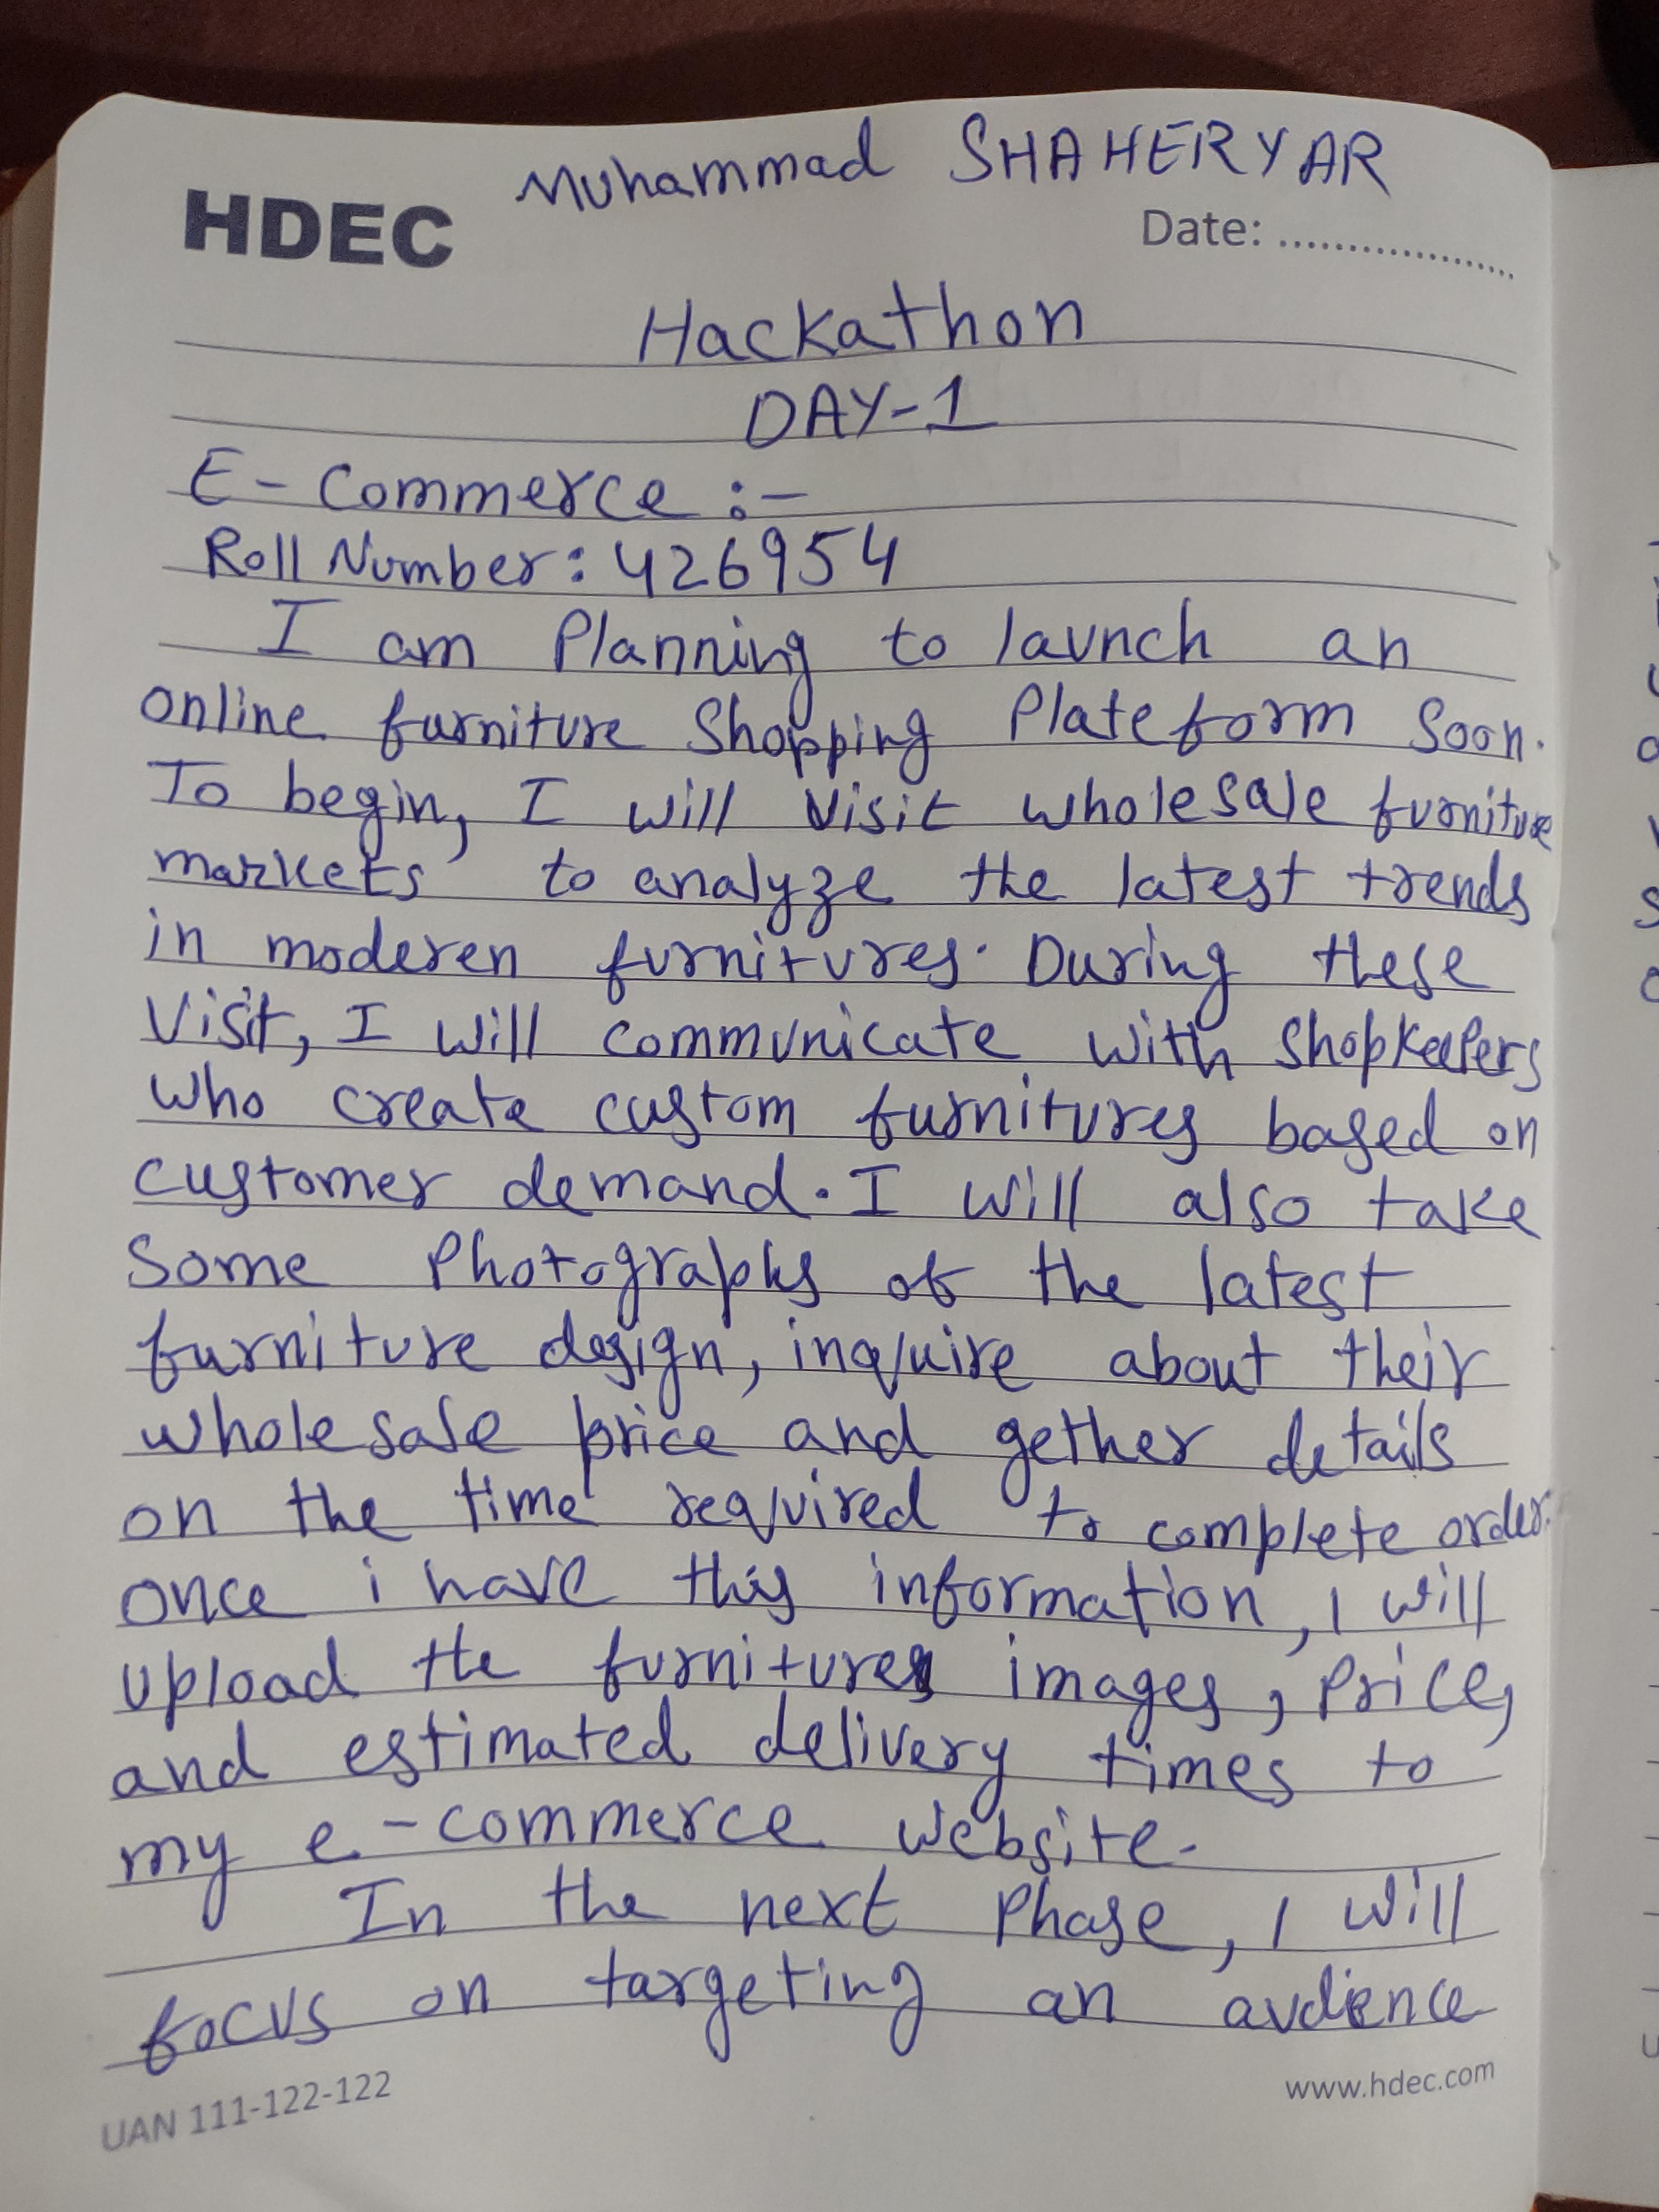 Muhammad SHAHERYAR
HDEC
Date: ......................
Hackathon
DAY-1
E-Commerce :-
Roll Number: 426954
I am Planning to launch an
online furniture Shopping Plateform Soon.
To begin, I will visit wholesale furniture
markets to analyze the latest trends
in moderen furnitures. During these
Visit, I will communicate with shopkeepers
who create custom furnitures based on
customer demand. I will also take
Some Photographs of the latest
furniture design, inquire about their
wholesale price and gether details
on the time required to complete order.
once i have this information, I will
upload the furnitures images, Price,
and estimated delivery times to
my e-commerce website.
In the next Phase, I will
focus on targeting an audience
UAN 111-122-122
www.hdec.com